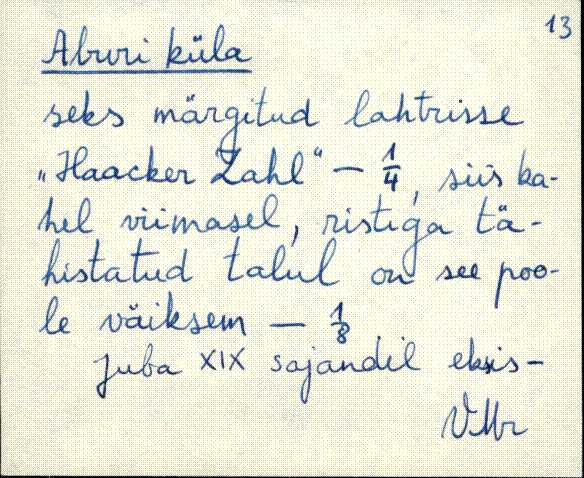 13
Aburi küla
seks märgitud lahtrisse
„Haacker Zahl“ — 1/4, siis ka-
hel viimasel, ristiga tä-
histatud talul on see poo-
le väiksem — 1/8
Juba XIX sajandil eksis-
VMr